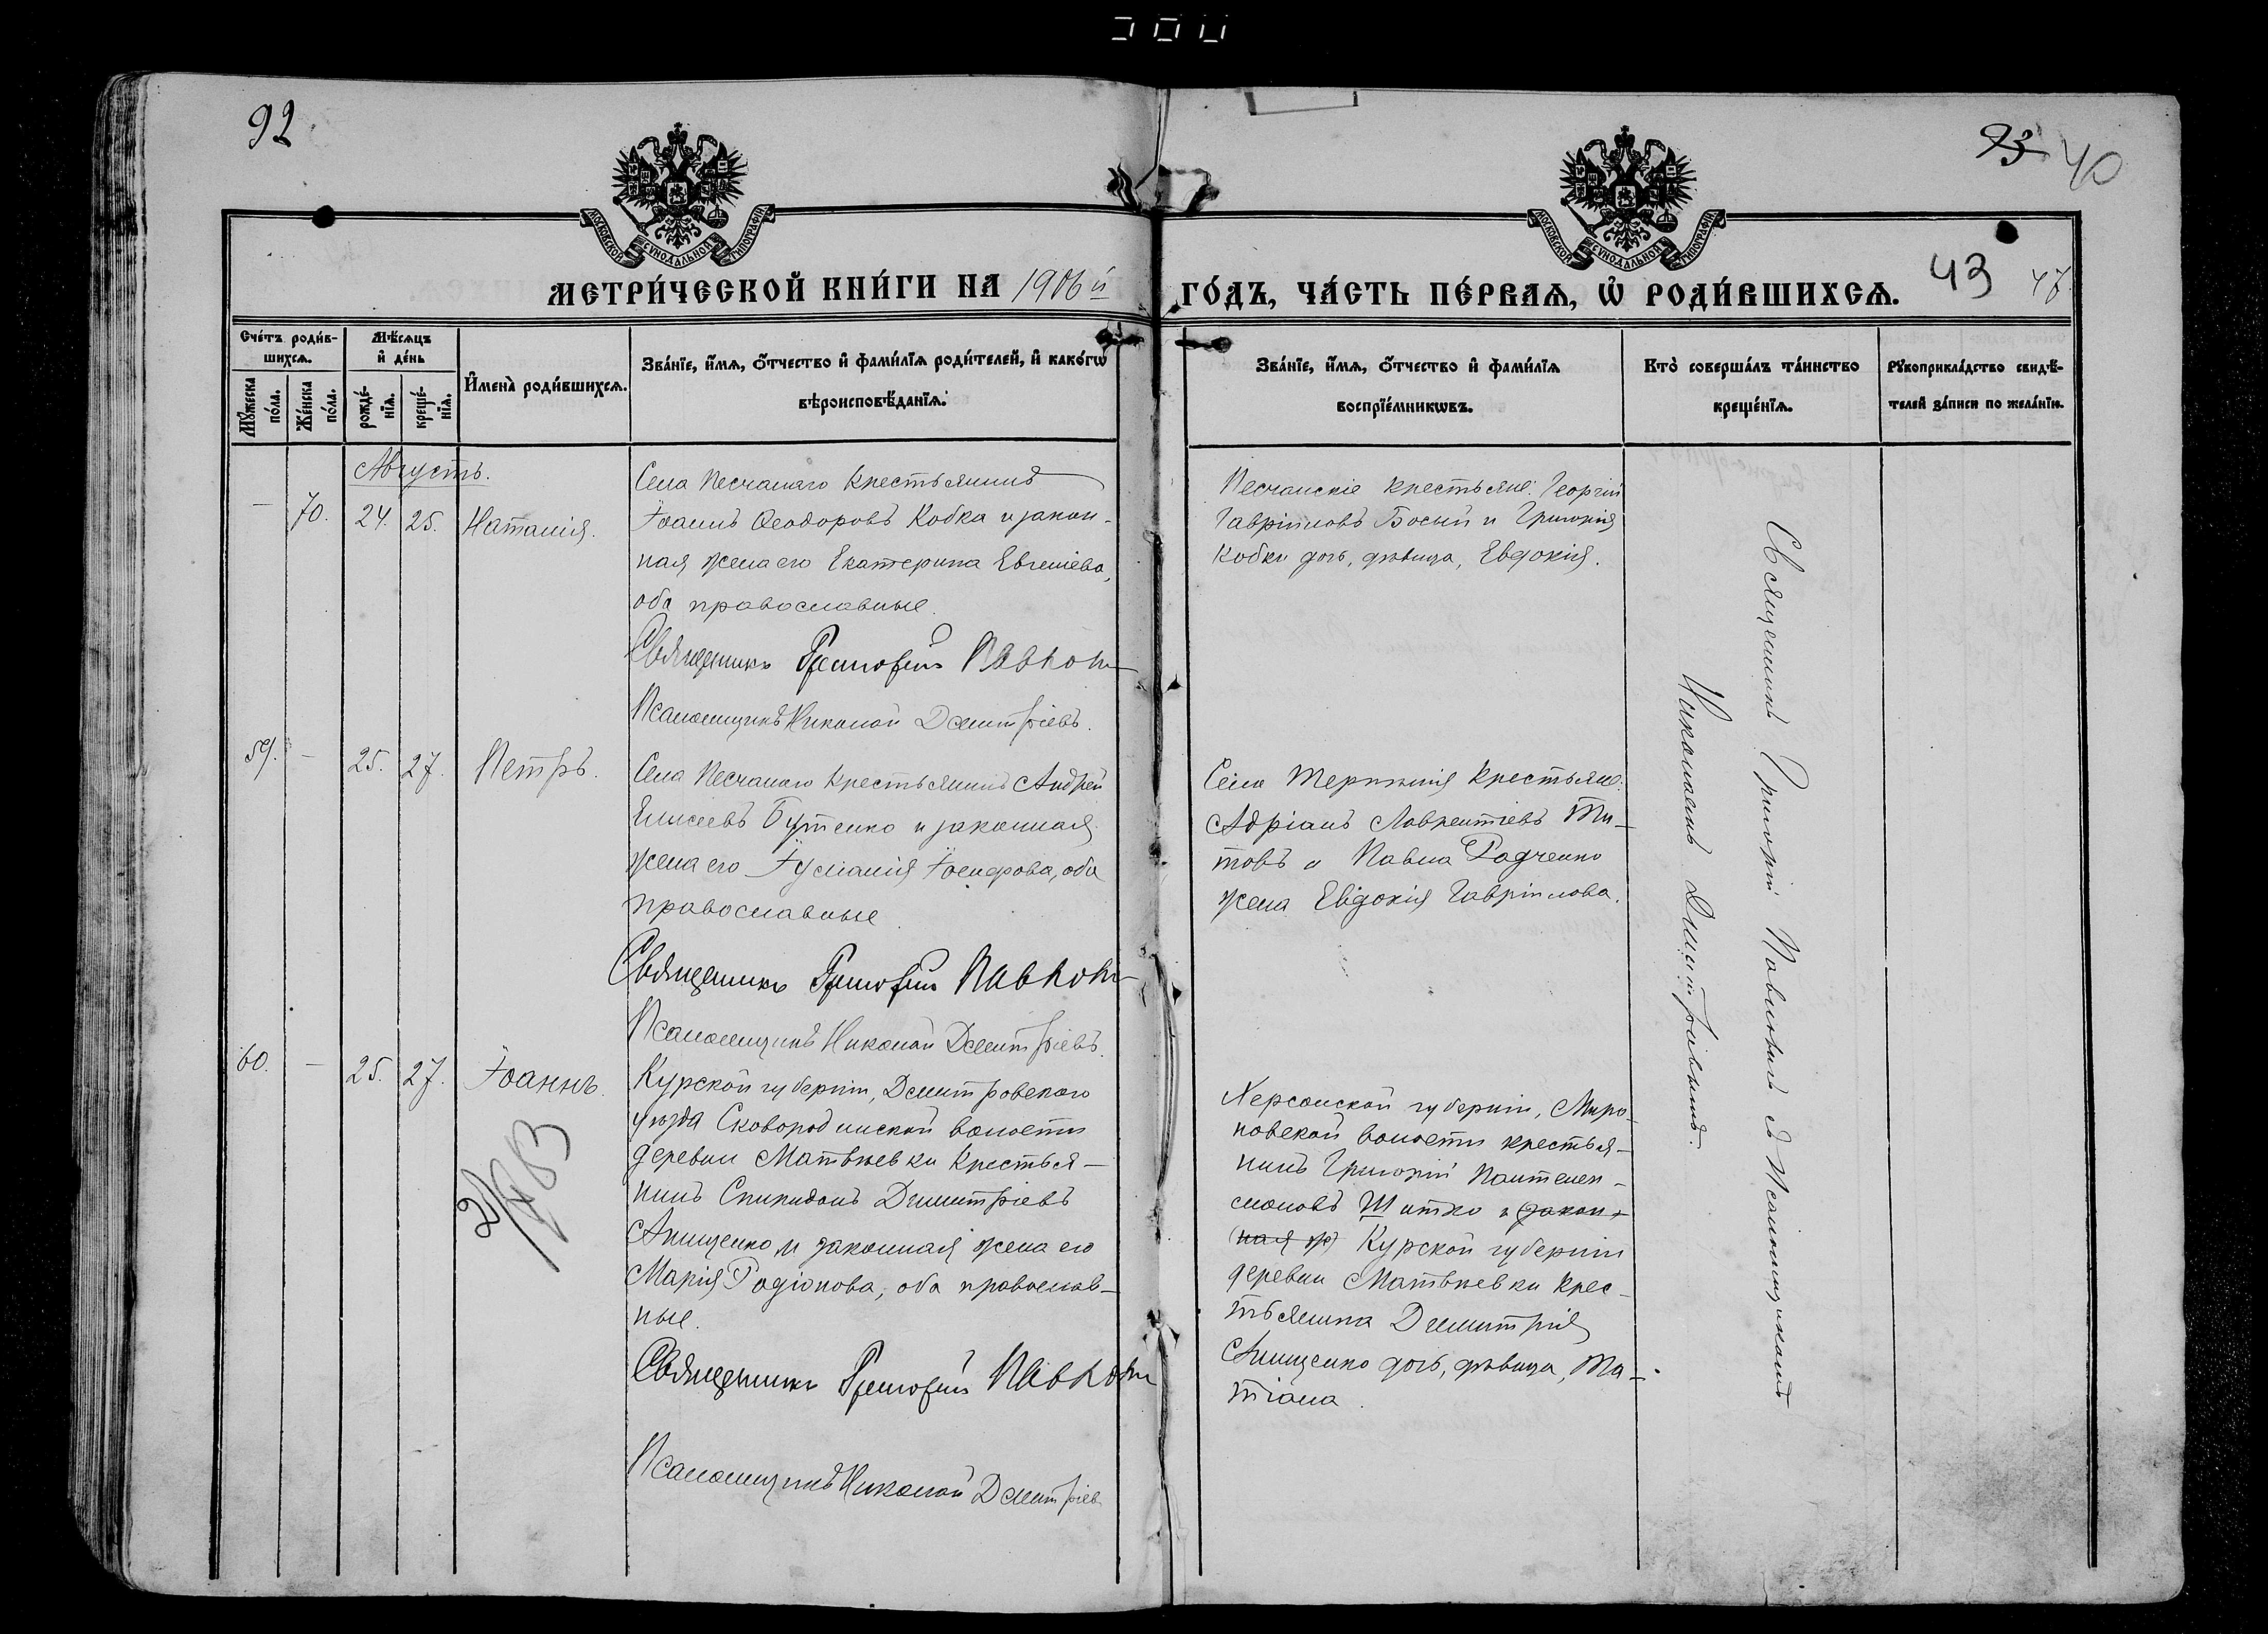 92
93 40
43 47
МОСКОВСКОЙ СѴНОДАЛЬНОЙ ТИПОГРАФІИ
МОСКОВСКОЙ СѴНОДАЛЬНОЙ ТИПОГРАФІИ
МЕТРИ́ЧЕСКОЙ КНИ́ГИ НА 1906 й ГО́ДЪ, ЧА́СТЬ ПЕ́РВАѦ, Ѡ҆ РОДИ́ВШИХСѦ.
Сче́тъ роди́в-
шихсѧ.
Мꙋ́жеска по́ла.
Же́нска по́ла.
Мѣ́сѧцъ
и҆ де́нь
рожде́-
нїѧ.
креще́-
нїѧ.
И҆мена̀ роди́вшихсѧ.
Зва́нїе, и҆́мѧ, ѻ҆́тчество и҆ фами́лїѧ роди́телей, и҆ како́гѡ
вѣроисповѣ́данїѧ.
Зва́нїе, и҆́мѧ, ѻ҆́тчество и҆ фами́лїѧ
воспрїе́мникѡвъ.
Кто̀ соверша́лъ та́инство
креще́нїѧ.
Рꙋкоприкла́дство свидѣ́-
телей за́писи по жела́нїю.
Августъ.
— 70. 24. 25. Наталія.
Села Песчанаго крестьянинъ
Іоаннъ Ѳеодоровъ Кобка и закон-
ная жена его Екатерина Евгеніева,
оба православные.
Священникъ Григорій
Псаломщикъ Николай Димитріевъ.
Песчанскіе крестьяне: Георгій
Гавріиловъ Босый и Григорія
Кобки дочь, дѣвица, Евдокія.
59. — 25. 27. Петръ.
Села Песчанаго крестьянинъ Андрей
Елисеевъ Бутенко и законная
жена его Іуліанія Іосифова, оба
православные
Священникъ Григорій
Псаломщикъ Николай Димитріевъ.
Села крестьяне:
Адріанъ Лаврентіевъ Ти-
товъ и Павла Радченко
жена Евдокія Гавріилова.
60. — 25. 27. Іоаннъ.
Курской губерніи, Дмитровскаго
уѣзда Сковороднинской волости
деревни Матвѣевки крестья-
нинъ Спиридонъ Димитріевъ
Анищенко и законная жена его
Марія Родіонова, оба православ-
ные.
Священникъ Григорій
Псаломщикъ Николай Димитріев
Херсонской губерніи, Миро-
новской волости крестья-
нинъ Григорій Пантелеи-
моновъ Шитко и (закон-
(ная ж) Курской губерніи
деревни Матвѣевки крес-
тьянина Димитрія
Анищенко дочь, дѣвица, Та-
тіана.
Священникъ Григорій Павловый съ Псаломщикомъ
Николаемъ Димитріевымъ.